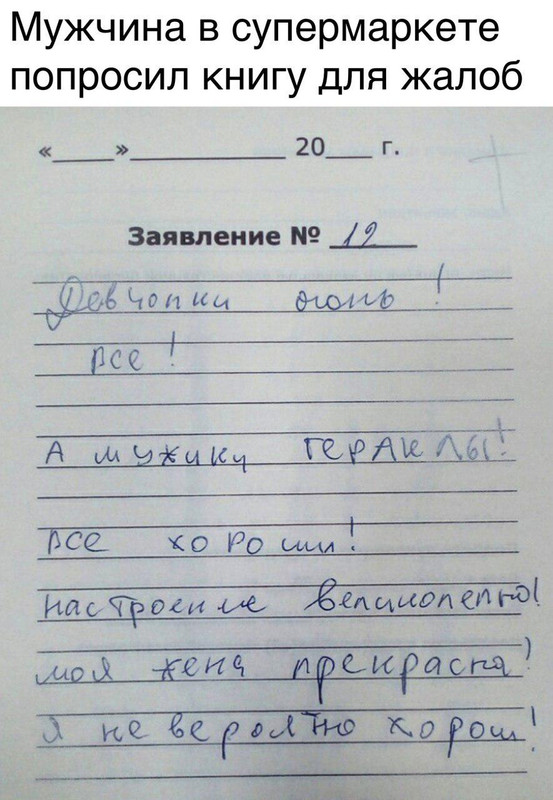 Мужчина в супермаркете
попросил книгу для жалоб
«____»____________ 20___ г.
Заявление № 12
Девчонки огонь!
все!
А мужики ГЕРАКЛЫ!
все хороши!
настроение великолепно!
моя жена прекрасна!
Я невероятно хорош!